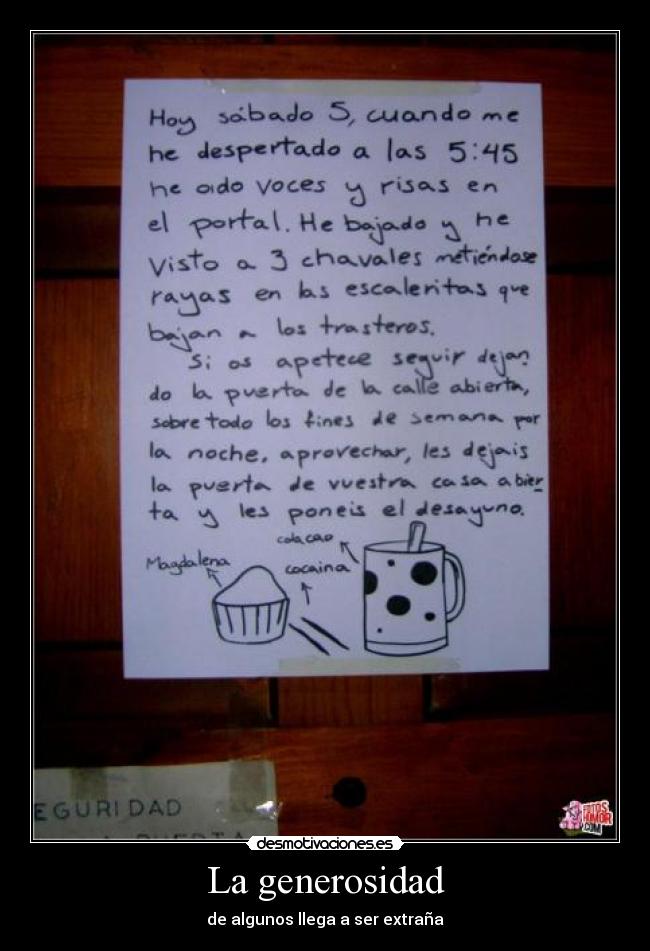 Hoy sábado 5, cuando me
he despertado a las 5:45
he oido voces y risas en
el portal. He bajado y he
visto a 3 chavales metiéndose
rayas en las escaleritas que
bajan a los trasteros.
Si os apetece seguir dejan
do la puerta de la calle abierta,
sobre todo los fines de semana por
la noche, aprovechar, les dejais
la puerta de vuestra casa abier
ta y les poneis el desayuno.
cola cao
Magdalena
cocaina
EGURIDAD
PUERTA
desmotivaciones.es
La generosidad
de algunos llega a ser extraña